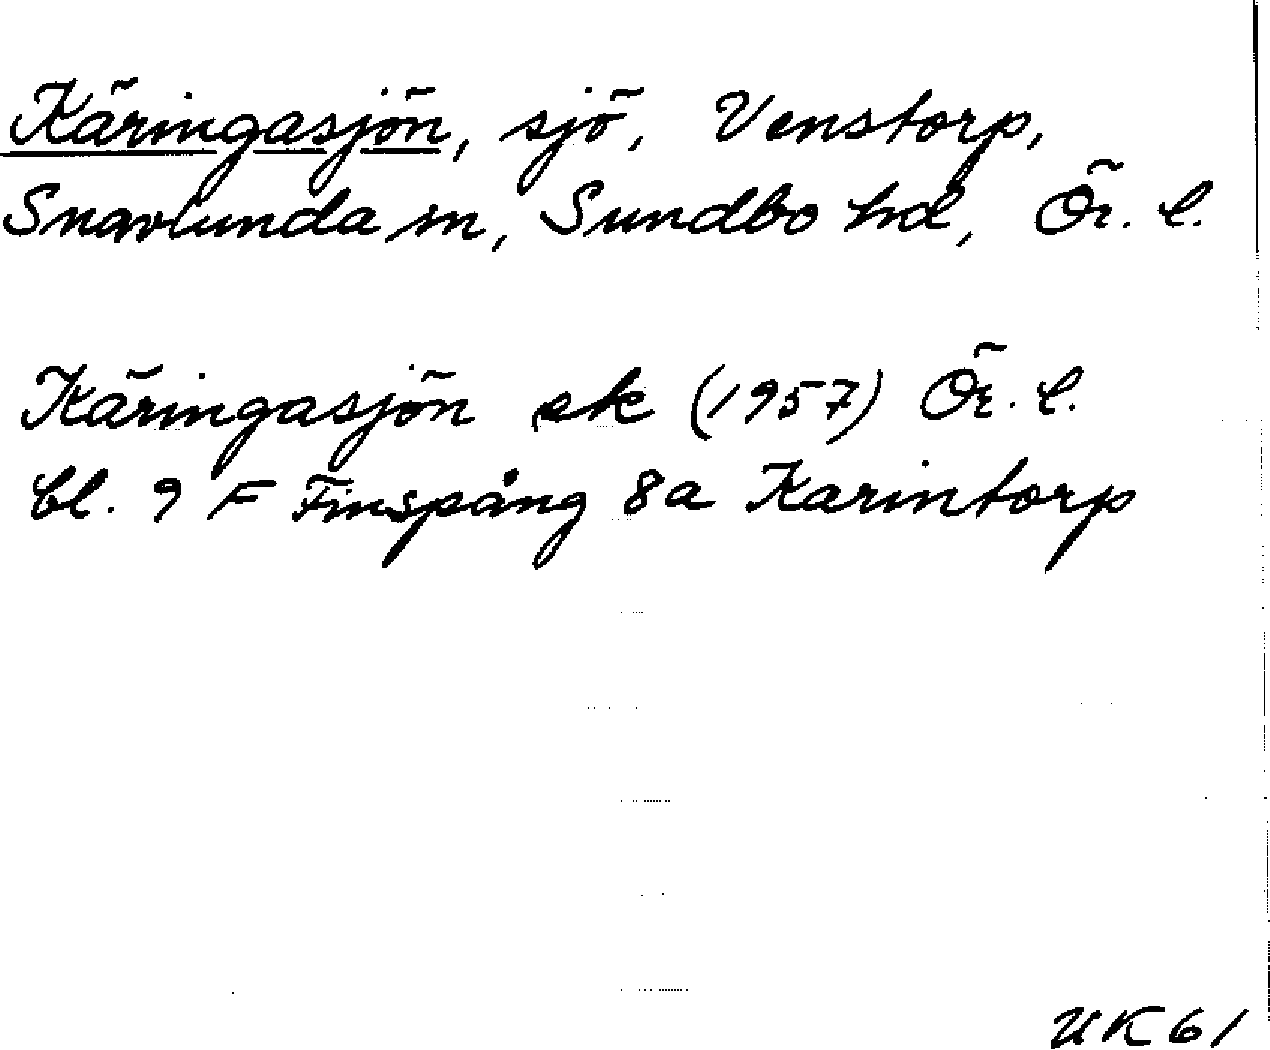 Käringasjön, sjö, Venstorp,
Snavlunda sn, Sundbo hd, Ör. l.
Käringasjön ek (1957) Ör. l.
bl. 9 F Finspång 8a Karintorp
UK 61